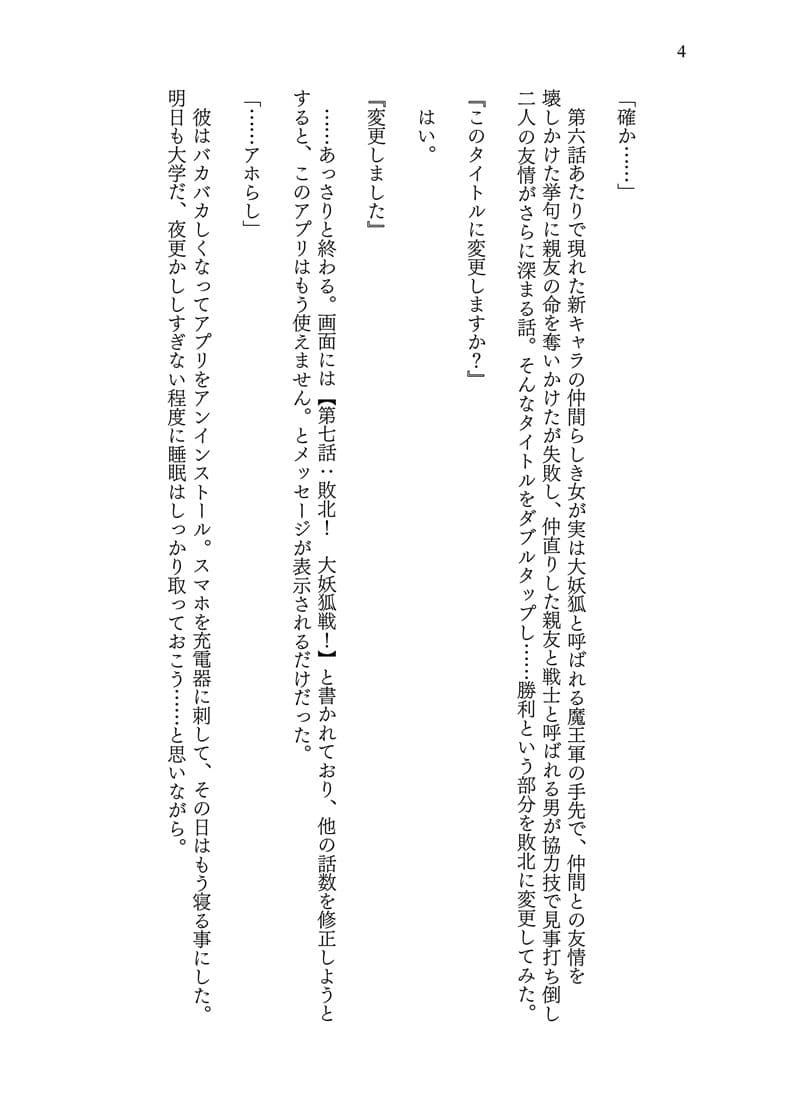 4
「確か……」
第六話あたりで現れた新キャラの仲間らしき女が実は大妖狐と呼ばれる魔王軍の手先で、仲間との友情を
壊しかけた挙句に親友の命を奪いかけたが失敗し、仲直りした親友と戦士と呼ばれる男が協力技で見事打ち倒し
二人の友情がさらに深まる話。そんなタイトルをダブルタップし……勝利という部分を敗北に変更してみた。
『このタイトルに変更しますか？』
はい。
『変更しました』
……あっさりと終わる。画面には【第七話：敗北！　大妖狐戦！】と書かれており、他の話数を修正しようと
すると、このアプリはもう使えません。とメッセージが表示されるだけだった。
「……アホらし」
彼はバカバカしくなってアプリをアンインストール。スマホを充電器に刺して、その日はもう寝る事にした。
明日も大学だ、夜更かししすぎない程度に睡眠はしっかり取っておこう……と思いながら。